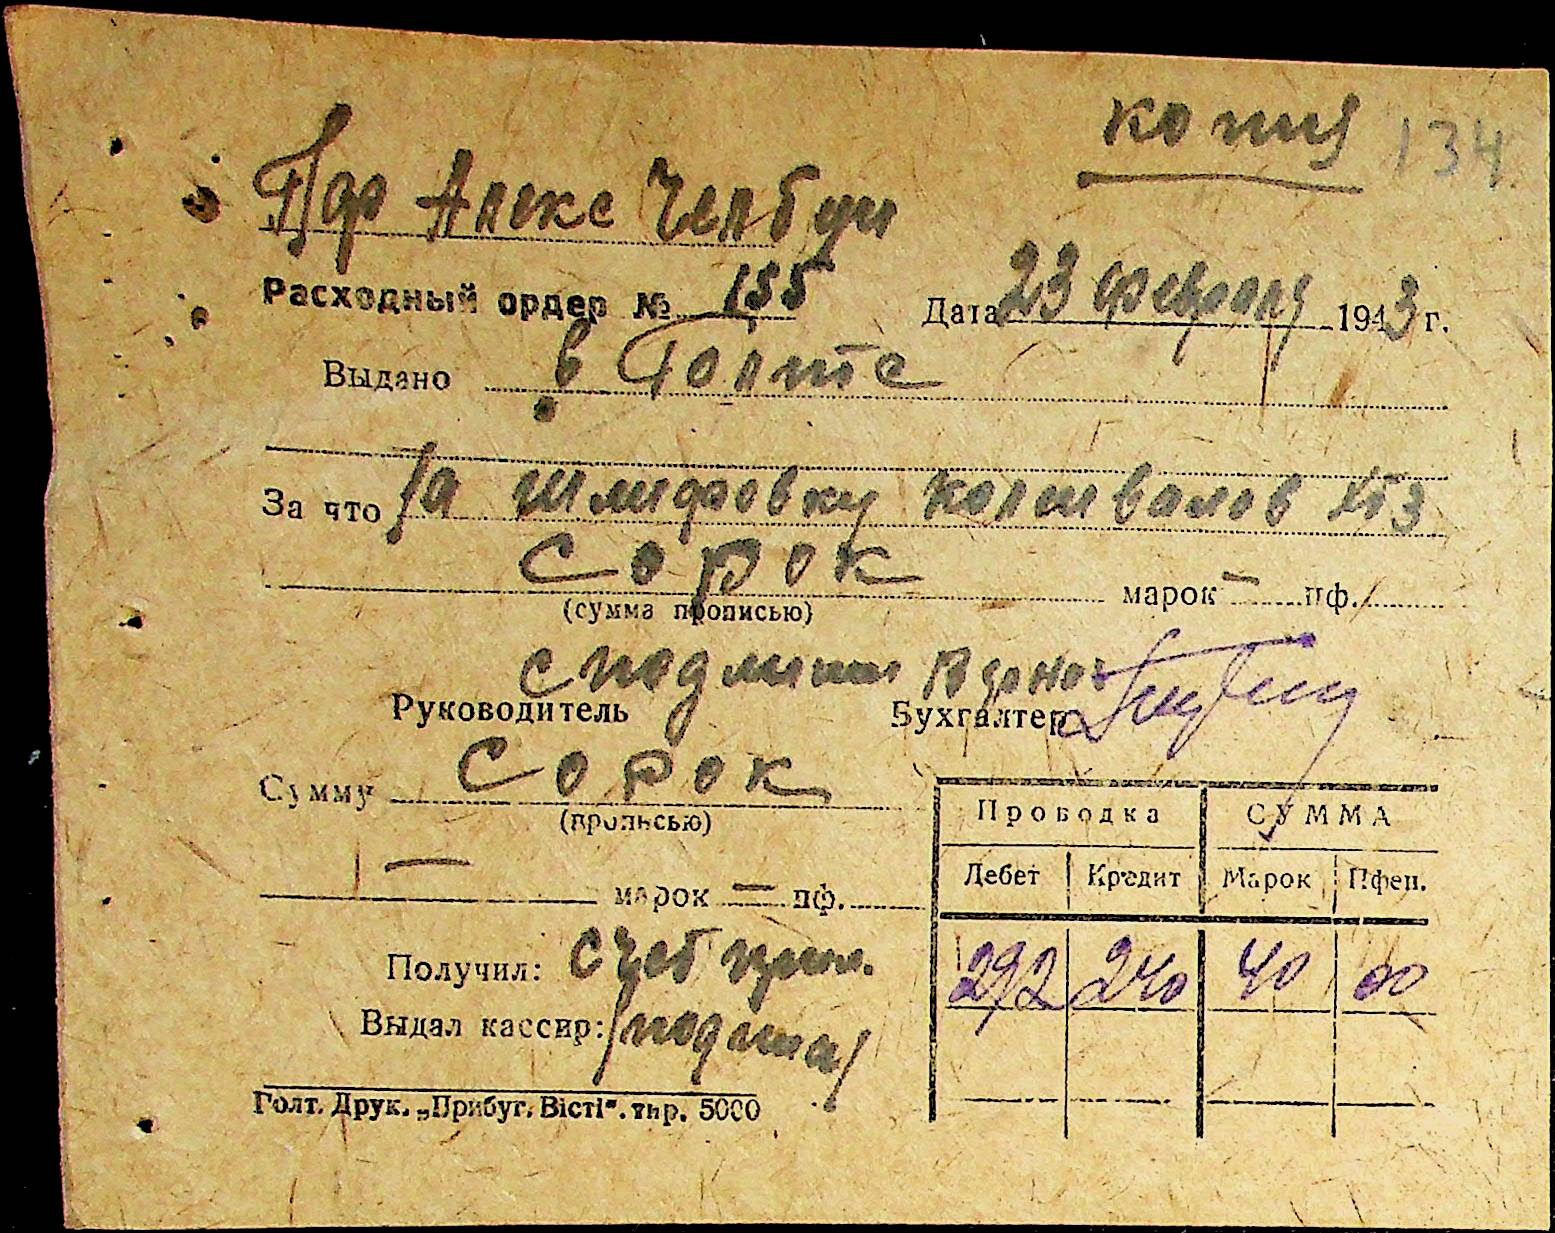 копия 134
Алекс
Расходный ордер № 155 Дата 23 февраля 1943 г.
Выдано в Голте
За что За шлифовку валов
Сорок марок — пф.
(сумма прописью)
с
Руководитель Бухгалтер
Сумму Сорок
(прописью)
— марок — пф.
Проводка СУММА
Дебет Кредит Марок Пфен.
292 240 40 00
Получил: Счет
Выдал кассир:
Голт. Друк. „Прибуг. Вісті“. тир. 5000